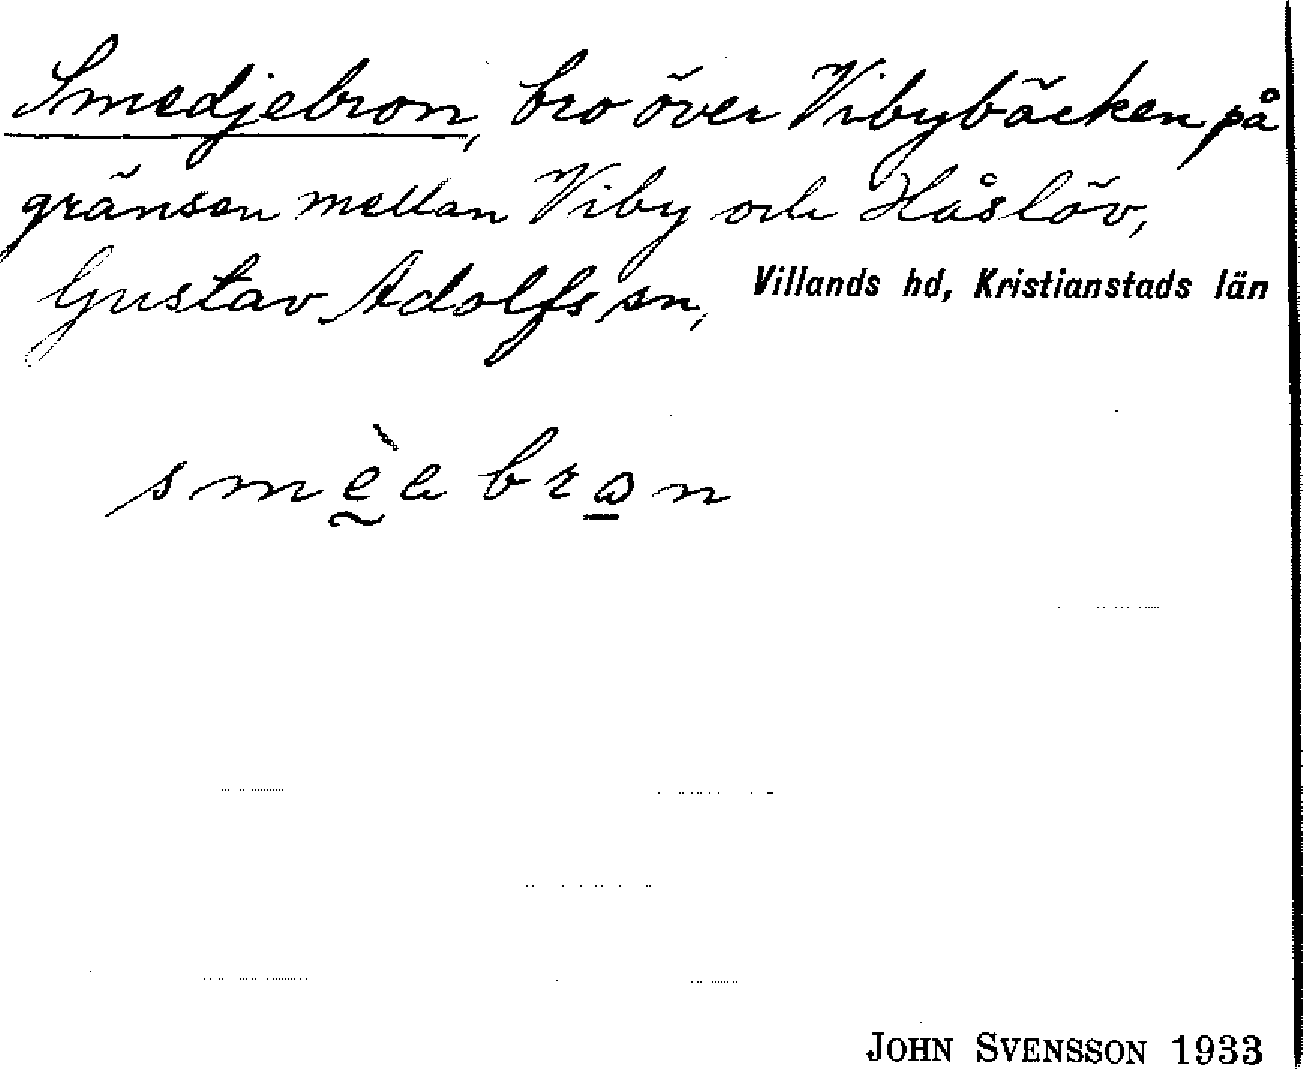 Smedjebron, bro över Vibybäcken på
gränsen mellan Viby och Håslöv,
Gustav Adolfs sn, Villands hd, Kristianstads län
smèebron
JOHN SVENSSON 1933